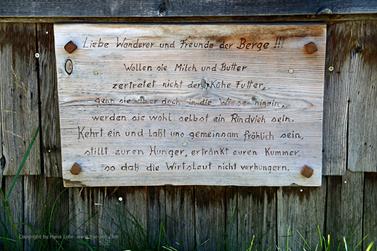 Liebe Wanderer und Freunde der Berge !!!
Wollen sie Milch und Butter
zertretet nicht der Kühe Futter,
gehn sie aber doch in die Wiese hinein,
werden sie wohl selbst ein Rindvieh sein.
Kehrt ein und Laßt uns gemeinsam fröhlich sein,
stillt euren Hunger, ertränkt euren Kummer,
so daß die Wirtslaut nicht verhungern.
Copyright by